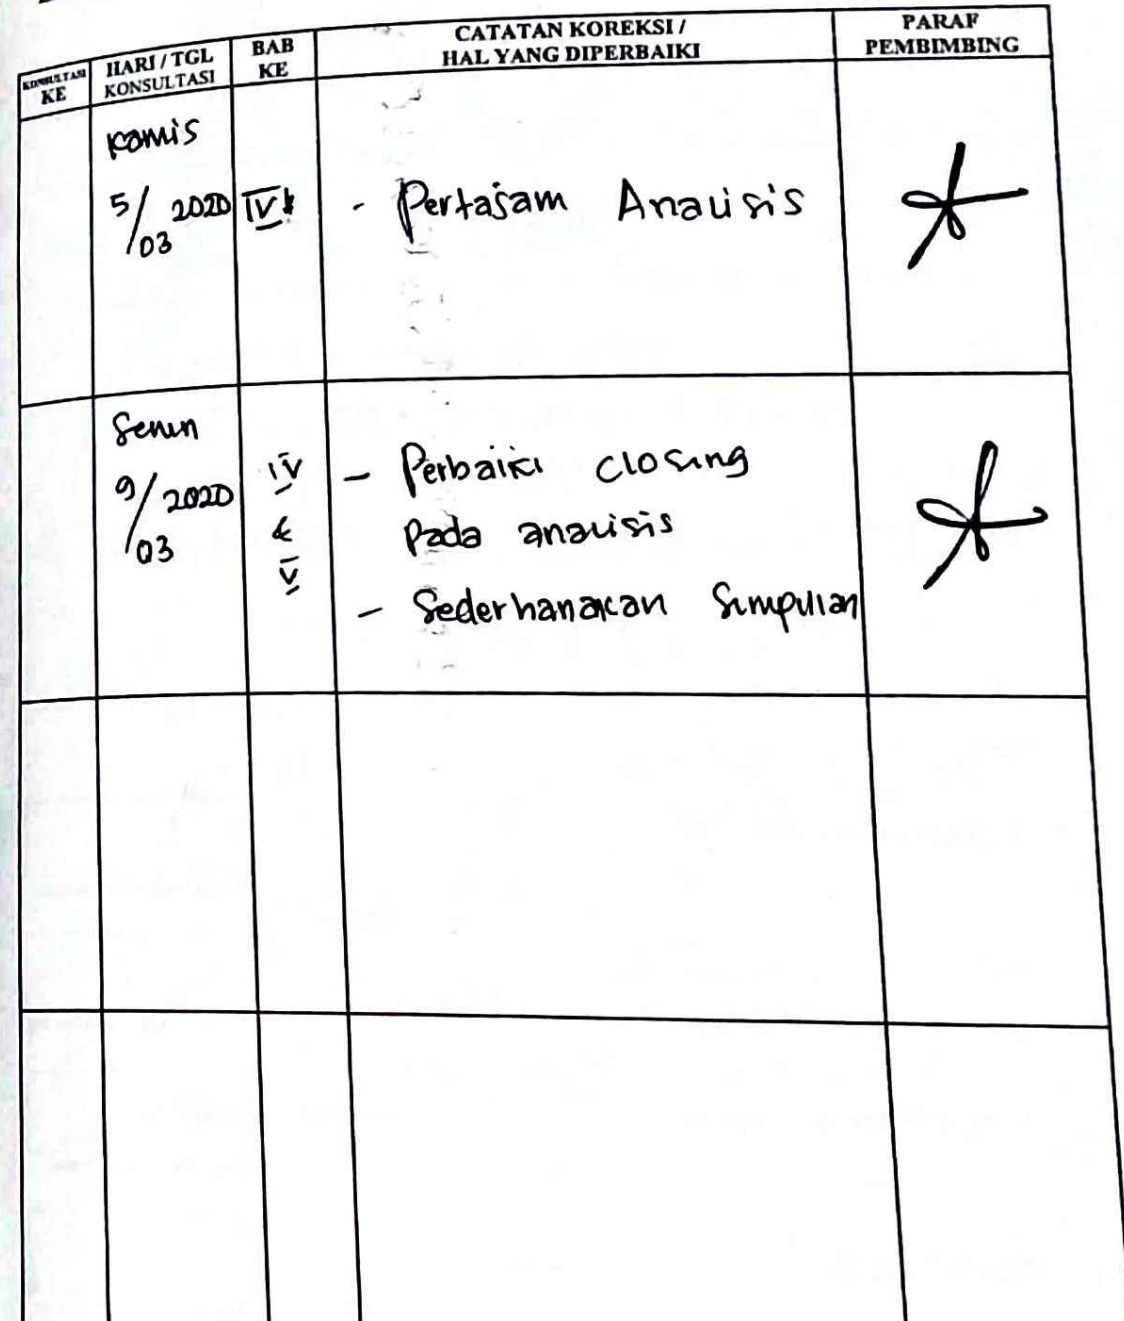 KONSULTASI KE
HARI / TGL KONSULTASI
BAB KE
CATATAN KOREKSI /
HAL YANG DIPERBAIKI
PARAF PEMBIMBING
Kamis
5/03 2020
IV
- Pertajam Analisis
Senin
9/03 2020
IV
&
V
- Perbaiki closing
Pada analisis
- Sederhanakan Simpulan